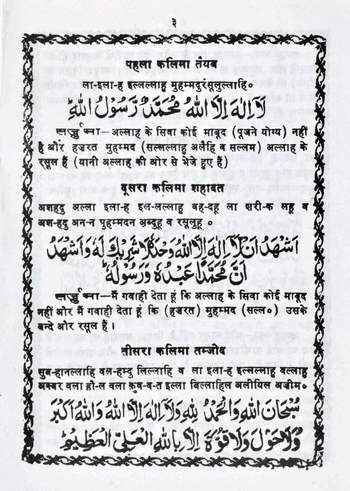 ३
पहला कलिमा तैयब
ला-इला-ह इल्लल्लाहु मुहम्मदुर्रसूलुल्लाहि०
لَآ اِلٰهَ اِلَّا اللّٰهُ مُحَمَّدٌ رَّسُوْلُ اللّٰهِ
तर्जुमा— अल्लाह के सिवा कोई माबूद (पूजने योग्य) नहीं
है और हज़रत मुहम्मद (सल्लल्लाहु अलैहि व सल्लम) अल्लाह के
रसूल हैं (यानी अल्लाह की ओर से भेजे हुए हैं)
दूसरा कलिमा शहादत
अशहदु अल्ला इलाह इल-लल्लाहु वह-दहू ला शरी-क लहू व
अश-हदु अन-न मुहम्मदन अब्दुहू व रसूलुहू ०
اَشْهَدُ اَنْ لَّآ اِلٰهَ اِلَّا اللّٰهُ وَحْدَهٗ لَا شَرِيْكَ لَهٗ وَاَشْهَدُ
اَنَّ مُحَمَّدًا عَبْدُهٗ وَرَسُوْلُهٗ
तर्जुमा—मैं गवाही देता हूं कि अल्लाह के सिवा कोई माबूद
नहीं और मैं गवाही देता हूं कि (हज़रत) मुहम्मद (सल्ल०) उसके
बन्दे और रसूल हैं ।
तीसरा कलिमा तमजीद
सुब-हानल्लाहि वल-हम्दु लिल्लाहि व ला इला-ह इल्लल्लाहु वल्लाहु
अक्बर वला हौ-ल वला क़ुव-व-त इल्ला बिल्लाहिल अलीयिल अज़ीम०
سُبْحَانَ اللّٰهِ وَالْحَمْدُ لِلّٰهِ وَلَآ اِلٰهَ اِلَّا اللّٰهُ وَاللّٰهُ اَكْبَرُ
وَلَا حَوْلَ وَلَا قُوَّةَ اِلَّا بِاللّٰهِ الْعَلِيِّ الْعَظِيْمِ